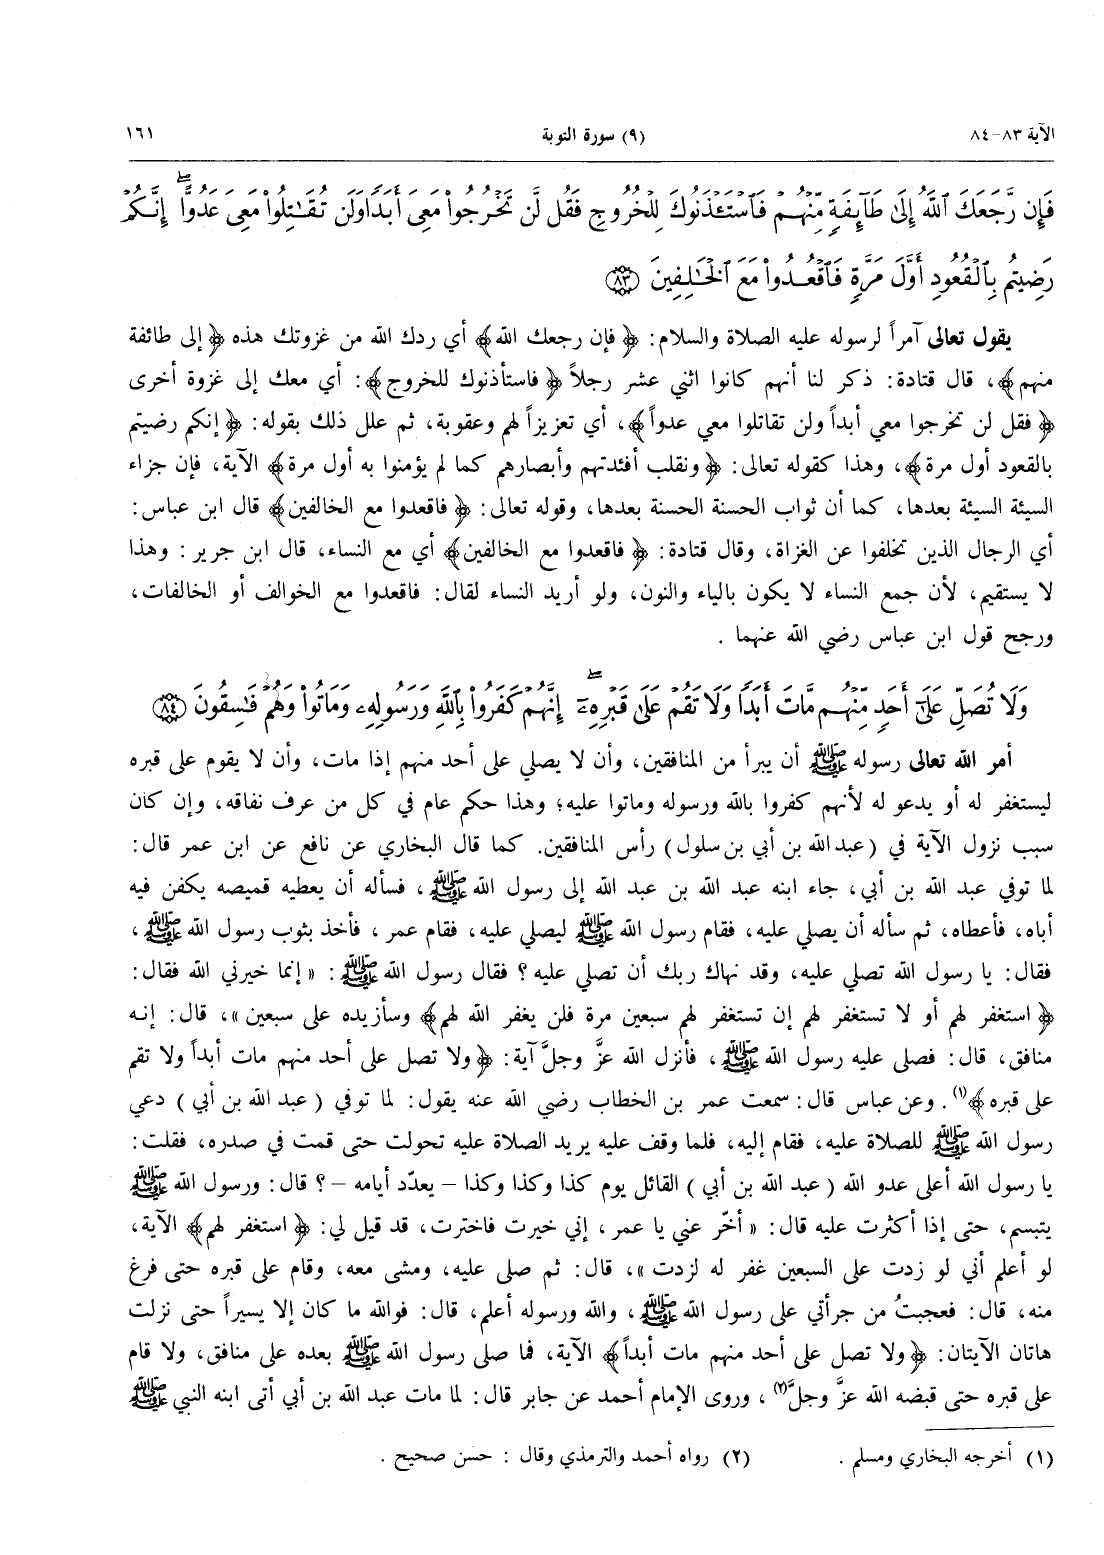 الآية ٨٣-٨٤ (٩) سورة التوبة ١٦١
فَإِن رَّجَعَكَ ٱللَّهُ إِلَىٰ طَآئِفَةٍ مِّنْهُمْ فَٱسْتَـْٔذَنُوكَ لِلْخُرُوجِ فَقُل لَّن تَخْرُجُوا۟ مَعِىَ أَبَدًا وَلَن تُقَـٰتِلُوا۟ مَعِىَ عَدُوًّا ۖ إِنَّكُمْ
رَضِيتُم بِٱلْقُعُودِ أَوَّلَ مَرَّةٍ فَٱقْعُدُوا۟ مَعَ ٱلْخَـٰلِفِينَ ﴿٨٣﴾
يقول تعالى آمراً لرسوله عليه الصلاة والسلام: ﴿ فإن رجعك الله﴾ أي ردك الله من غزوتك هذه ﴿ إلى طائفة
منهم﴾، قال قتادة: ذكر لنا أنهم كانوا اثني عشر رجلاً ﴿ فاستأذنوك للخروج﴾: أي معك إلى غزوة أخرى
﴿ فقل لن تخرجوا معي أبداً ولن تقاتلوا معي عدواً﴾، أي تعزيزاً لهم وعقوبة، ثم علل ذلك بقوله: ﴿ إنكم رضيتم
بالقعود أول مرة﴾، وهذا كقوله تعالى: ﴿ ونقلب أفئدتهم وأبصارهم كما لم يؤمنوا به أول مرة﴾ الآية، فإن جزاء
السيئة السيئة بعدها، كما أن ثواب الحسنة الحسنة بعدها، وقوله تعالى: ﴿ فاقعدوا مع الخالفين﴾ قال ابن عباس:
أي الرجال الذين تخلفوا عن الغزاة، وقال قتادة: ﴿ فاقعدوا مع الخالفين﴾ أي مع النساء، قال ابن جرير: وهذا
لا يستقيم، لأن جمع النساء لا يكون بالياء والنون، ولو أريد النساء لقال: فاقعدوا مع الخوالف أو الخالفات،
ورجح قول ابن عباس رضي الله عنهما .
وَلَا تُصَلِّ عَلَىٰٓ أَحَدٍ مِّنْهُم مَّاتَ أَبَدًا وَلَا تَقُمْ عَلَىٰ قَبْرِهِۦٓ ۖ إِنَّهُمْ كَفَرُوا۟ بِٱللَّهِ وَرَسُولِهِۦ وَمَاتُوا۟ وَهُمْ فَـٰسِقُونَ ﴿٨٤﴾
أمر الله تعالى رسوله ﷺ أن يبرأ من المنافقين، وأن لا يصلي على أحد منهم إذا مات، وأن لا يقوم على قبره
ليستغفر له أو يدعو له لأنهم كفروا بالله ورسوله وماتوا عليه؛ وهذا حكم عام في كل من عرف نفاقه، وإن كان
سبب نزول الآية في (عبد الله بن أبي بن سلول) رأس المنافقين. كما قال البخاري عن نافع عن ابن عمر قال:
لما توفي عبد الله بن أبي، جاء ابنه عبد الله بن عبد الله إلى رسول الله ﷺ، فسأله أن يعطيه قميصه يكفن فيه
أباه، فأعطاه، ثم سأله أن يصلي عليه، فقام رسول الله ﷺ ليصلي عليه، فقام عمر، فأخذ بثوب رسول الله ﷺ،
فقال: يا رسول الله تصلي عليه، وقد نهاك ربك أن تصلي عليه؟ فقال رسول الله ﷺ: « إنما خيرني الله فقال:
﴿ استغفر لهم أو لا تستغفر لهم إن تستغفر لهم سبعين مرة فلن يغفر الله لهم﴾ وسأزيده على سبعين »، قال: إنه
منافق، قال: فصلى عليه رسول الله ﷺ، فأنزل الله عزَّ وجلَّ آية: ﴿ولا تصل على أحد منهم مات أبداً ولا تقم
على قبره﴾(١). وعن عباس قال: سمعت عمر بن الخطاب رضي الله عنه يقول: لما توفي ( عبد الله بن أبي ) دعي
رسول الله ﷺ للصلاة عليه، فقام إليه، فلما وقف عليه يريد الصلاة عليه تحولت حتى قمت في صدره، فقلت:
يا رسول الله أعلى عدو الله ( عبد الله بن أبي ) القائل يوم كذا وكذا وكذا - يعدّد أيامه -؟ قال: ورسول الله ﷺ
يتبسم، حتى إذا أكثرت عليه قال: « أخّر عني يا عمر، إني خيرت فاخترت، قد قيل لي: ﴿ استغفر لهم﴾ الآية،
لو أعلم أني لو زدت على السبعين غفر له لزدت »، قال: ثم صلى عليه، ومشى معه، وقام على قبره حتى فرغ
منه، قال: فعجبتُ من جرأتي على رسول الله ﷺ، والله ورسوله أعلم، قال: فوالله ما كان إلا يسيراً حتى نزلت
هاتان الآيتان: ﴿ولا تصل على أحد منهم مات أبداً﴾ الآية، فما صلى رسول الله ﷺ بعده على منافق، ولا قام
على قبره حتى قبضه الله عزَّ وجلَّ(٢)، وروى الإمام أحمد عن جابر قال: لما مات عبد الله بن أبي أتى ابنه النبي ﷺ
(١) أخرجه البخاري ومسلم . (٢) رواه أحمد والترمذي وقال : حسن صحيح .